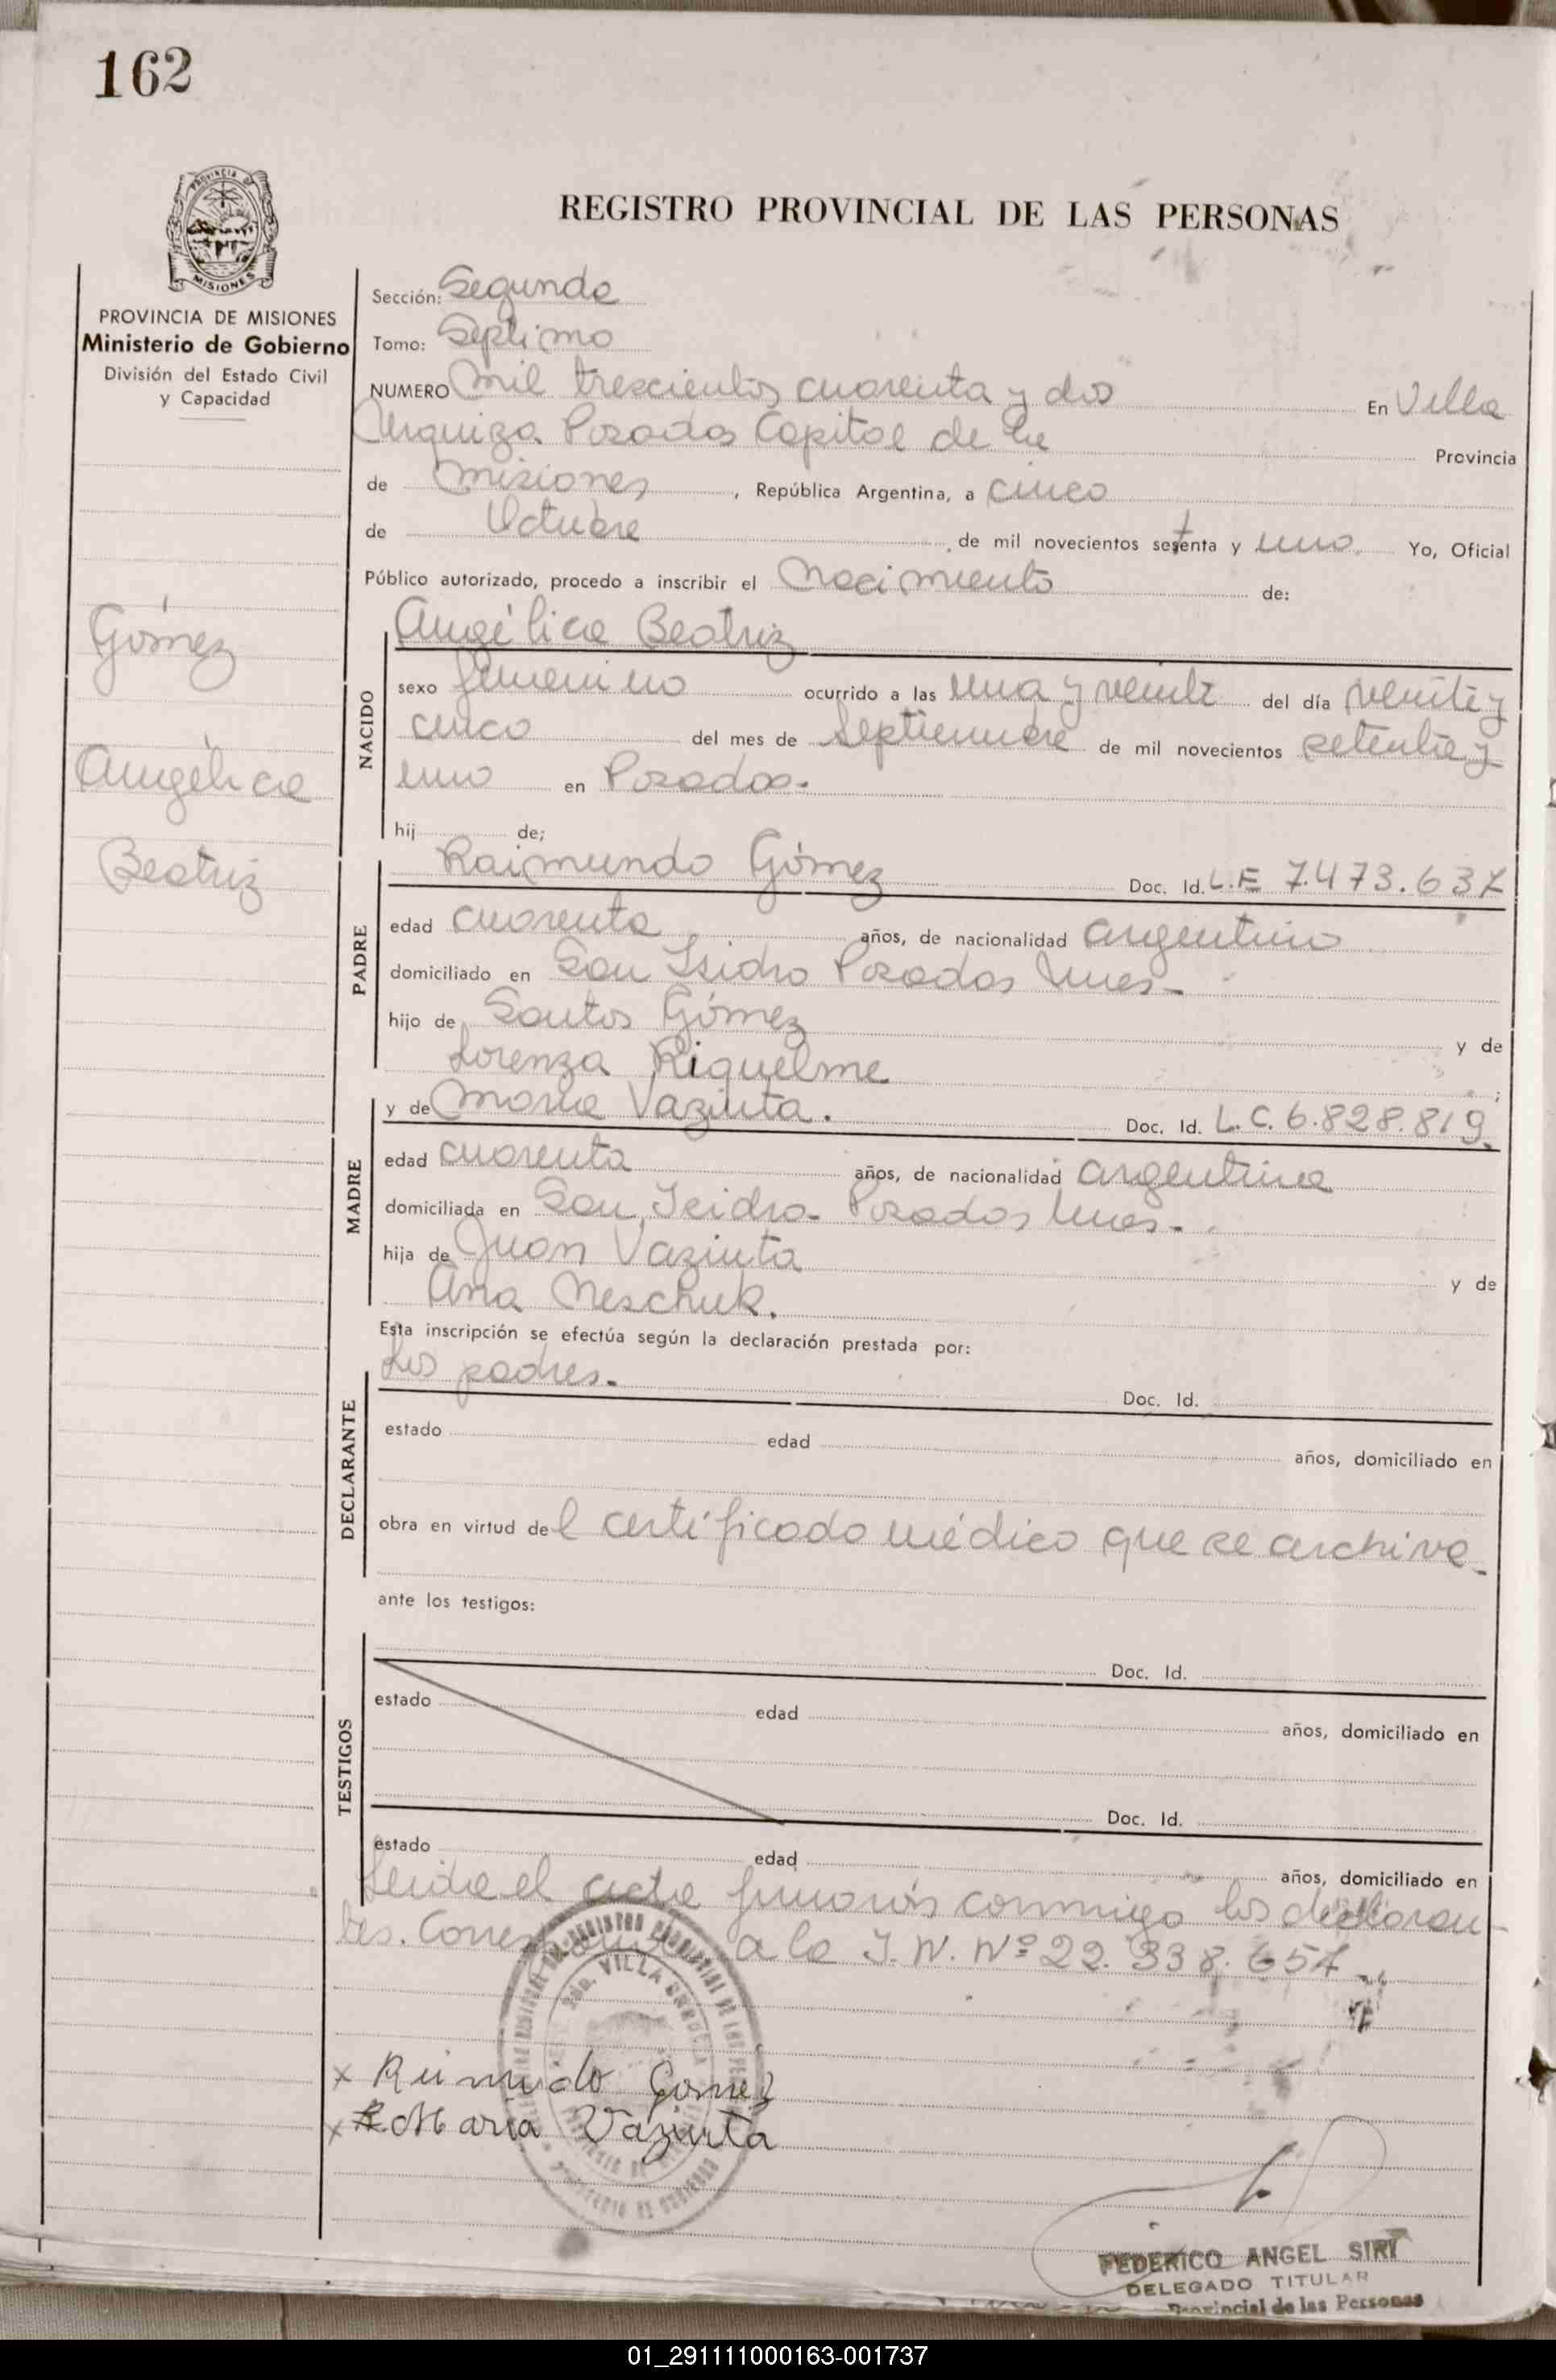 162
PROVINCIA DE
MISIONES
REGISTRO PROVINCIAL DE LAS PERSONAS
PROVINCIA DE MISIONES
Ministerio de Gobierno
División del Estado Civil
y Capacidad
Gómez
Angélica
Beatriz
Sección: Segunda
Tomo: Septimo
NUMERO mil trescientos cuarenta y dos En Villa
Urquiza Posadas Capital de la Provincia
de Misiones, República Argentina, a cinco
de Octubre de mil novecientos setenta y uno. Yo, Oficial
Público autorizado, procedo a inscribir el Nacimiento de:
Angélica Beatriz
NACIDO
sexo femenino ocurrido a las una y veinte del día veinte y
cinco del mes de Septiembre de mil novecientos setenta y
uno en Posadas.
hij de;
PADRE
Raimundo Gómez Doc. Id. L.E 7.473.637
edad cuarenta años, de nacionalidad argentino
domiciliado en San Isidro Posados Mnes-
hijo de Santos Gómez y de
Lorenza Riquelme ;
MADRE
y de Maria Vaziuta. Doc. Id. L.C. 6.828.819.
edad cuarenta años, de nacionalidad argentina
domiciliada en San Isidro- Posados Mnes-
hija de Juan Vaziuta y de
Ana Meschuk.
Esta inscripción se efectúa según la declaración prestada por:
DECLARANTE
Los padres. Doc. Id.
estado edad años, domiciliado en
obra en virtud del certificado médico que se archiva-
ante los testigos:
TESTIGOS
Doc. Id.
estado edad años, domiciliado en
Doc. Id.
estado edad años, domiciliado en
Leida el acta firmarón conmigo los declaran-
tes. a la I.N. Nº 22.338.657.
x Rimundo Gomez
x Maria Vaziuta
FEDERICO ANGEL SIRI
DELEGADO TITULAR
Provincial de las Personas
01_291111000163-001737